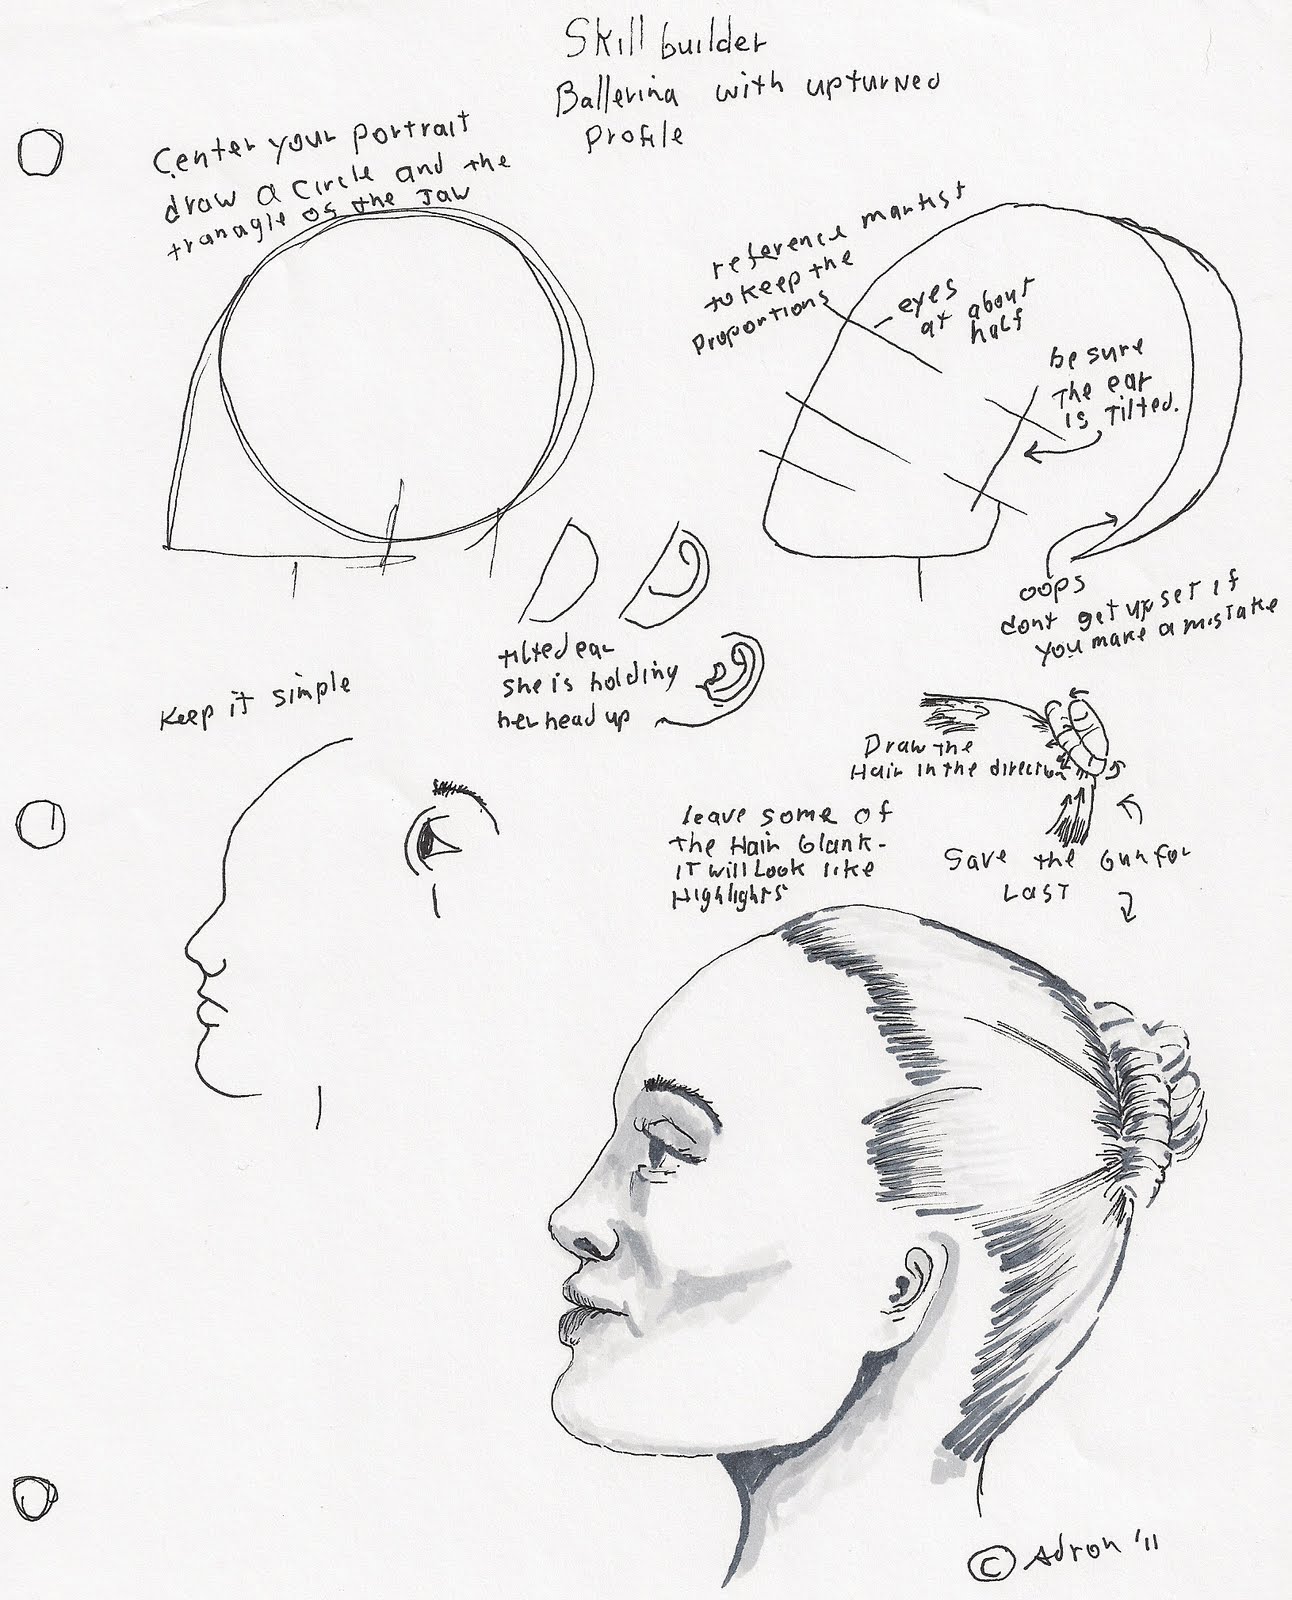 Skill builder
Ballerina with upturned
Profile
Center your portrait
draw a circle and the
tranagle of the Jaw
reference
to keep the
proportions
eyes
at about
half
be sure
The ear
is Tilted.
oops
dont get upset if
you make a mistake
tilted ear
she is holding
her head up
Keep it simple
Draw the
Hair in the direction
leave some of
the Hair blank-
IT will Look like
Highlights
Save the bun for
LAST
© Adron '11